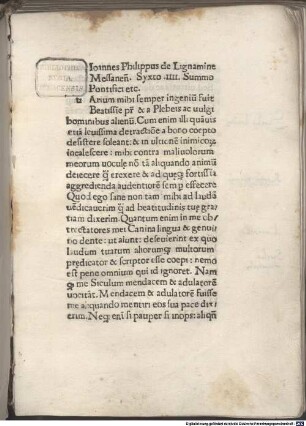 Ioannes Philippus de Lignamine
Messaneñ. Syxto .IIII. Summo
Pontifici etc.
Anum mihi semper ingeniũ fuit
Beatissie pr̃ & a Plebeis ac uulgi
hominibus alienũ. Cum enim illi quãuis
etiã leuissima detractiõe a bono corpto
desistere soleant: & in ultiõem inimicoꝝ
incalescere: mihi contra maliuolorum
meorum uoculę nõ tã aliquando animũ
deiecere q̃ erexere & ad quęq; fortissia
aggredienda audentiorẽ semp effecere
Quod ego sane non tam mihi ad laudẽ
uendicauerim q̃ ad beatitudinis tuę gra
tiam dixerim. Quantum enim in me ob
trectatores mei Canina lingua & genui
no dente: ut aiunt: deseuierint ex quo
laudum tuarum aliorumq; multorum
predicator & scriptor esse coepi: nem
est pene omnium qui id ignoret. Nam
me Siculum mendacem & adulatorẽ
uocitãt. Mendacem & adulatorẽ fuisse
me aliquando mentiri eos sua pace dix
erim. Neq; eni si pauper si inops: aliqñ